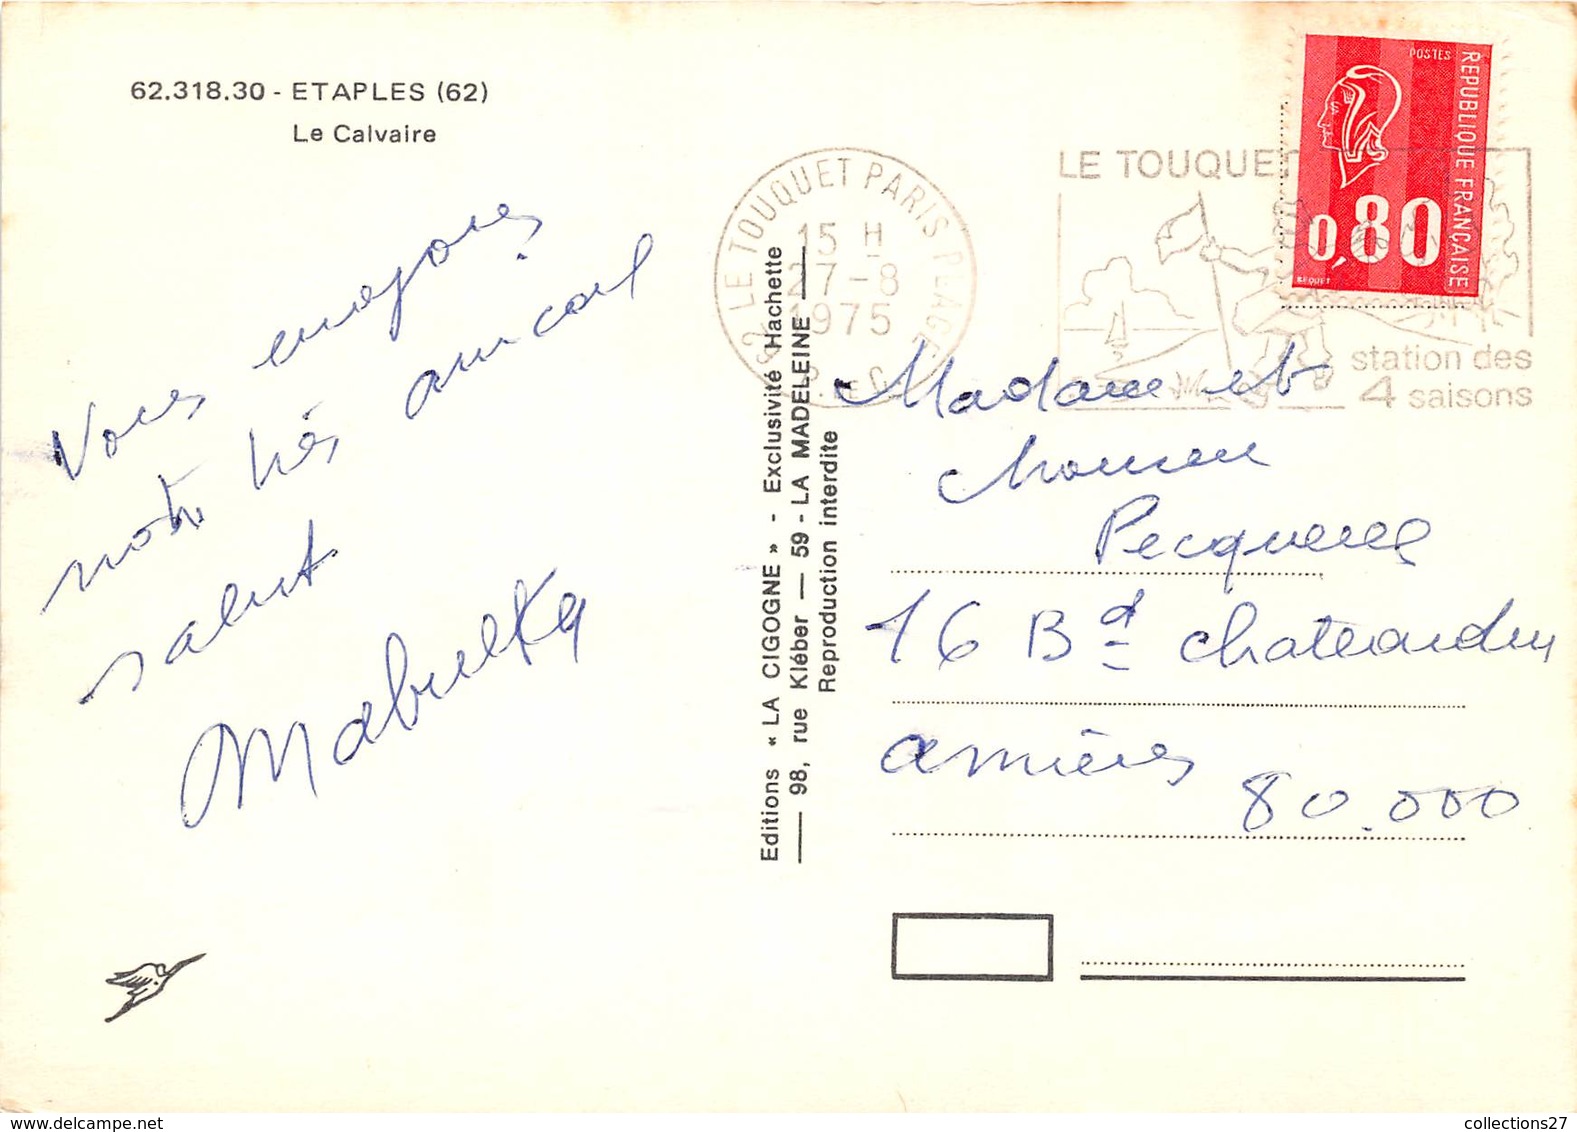 62.318.30 - ETAPLES (62)
Le Calvaire
Vous envoyons
notre très amical
salut
Editions « LA CIGOGNE » - Exclusivité Hachette
98, rue Kléber — 59 - LA MADELEINE
Reproduction interdite
62 LE TOUQUET PARIS PLAGE
15 H
27-8
1975
P. DE C.
LE TOUQUET
station des
4 saisons
POSTES
REPUBLIQUE FRANÇAISE
0,80
BEQUET
Madame et
Monsieur
16 Bd
Amiens
80.000
collections27